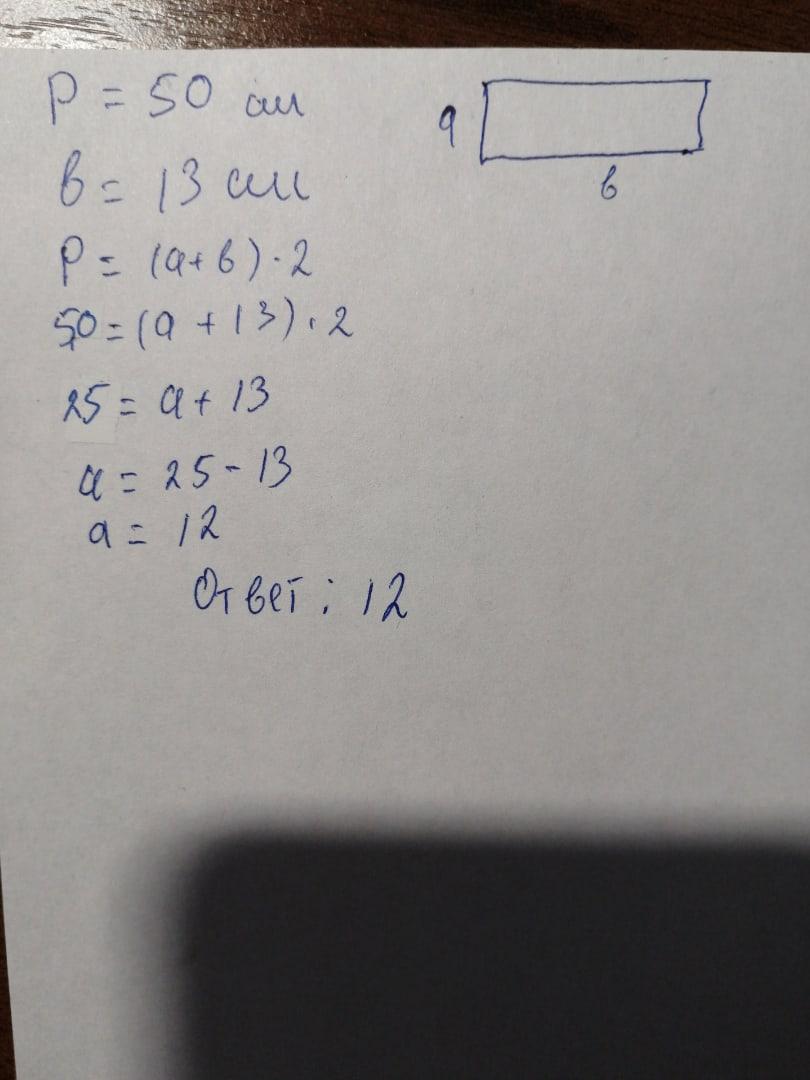 P = 50 см
a
в
в = 13 см
P = (a+в)·2
50 = (a + 13)·2
25 = a + 13
a = 25 - 13
a = 12
Ответ: 12